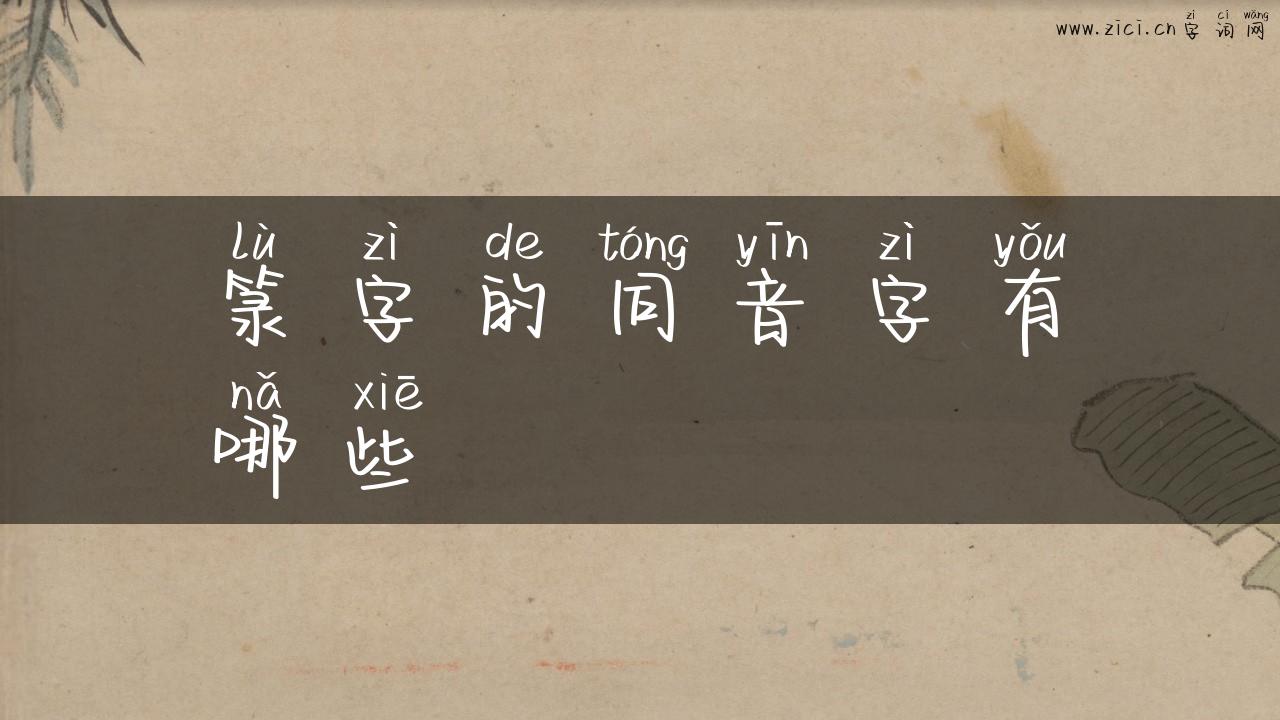 zì cí wǎng
www.zici.cn 字 词 网
lù zì de tóng yīn zì yǒu
箓 字 的 同 音 字 有
nǎ xiē
哪 些